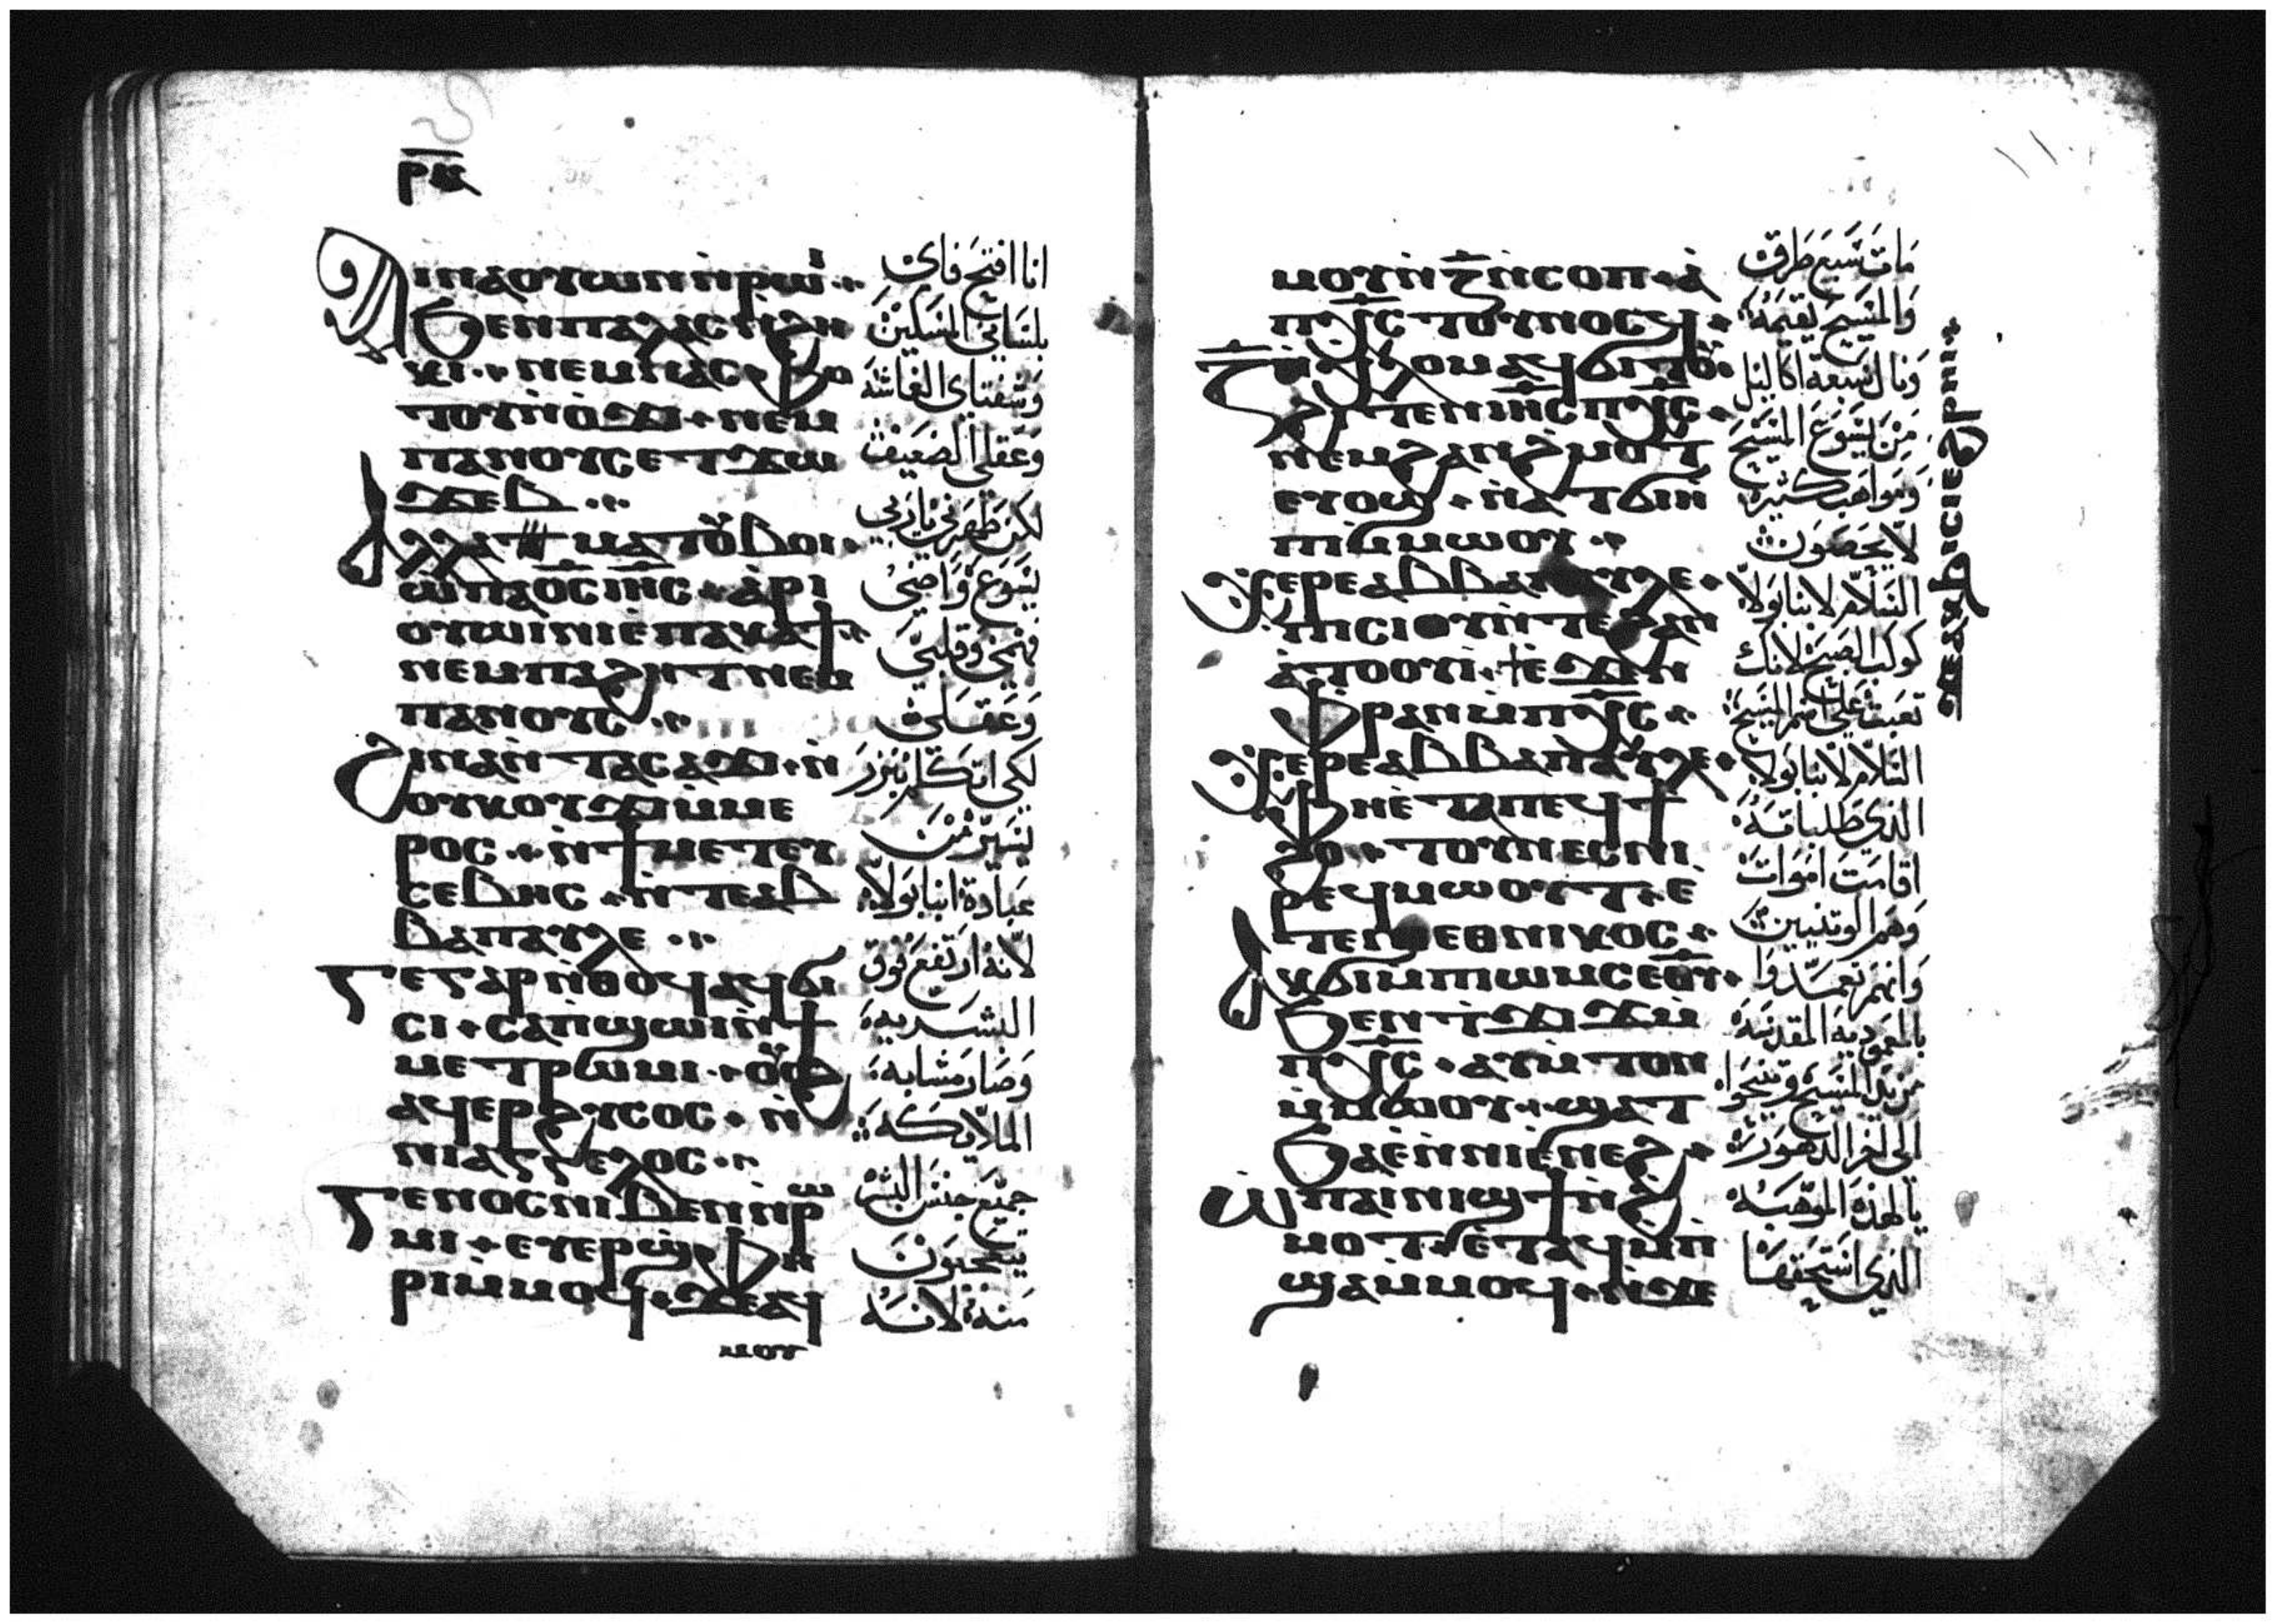 ⲣⲕ
ϯⲛⲁⲟⲩⲱⲛ ⲛ̀ⲣⲱⲓ
ϧⲉⲛ ⲡⲁⲗⲁⲥ ⲛ̀ϩⲏ
ⲕⲓ ⲛⲉⲙ ⲛⲁⲥⲫⲟ
ⲧⲟⲩ ⲛ̀ⲟϫⲓ ⲛⲉⲙ
ⲡⲁⲛⲟⲩⲥ ⲉⲧϫⲱ
ϫⲉⲃ
ⲁⲗⲗⲁ ⲙⲁⲧⲟⲩⲃⲟⲓ
ⲱ ⲡⲁⲟ̅ⲥ̅ ⲓⲏ̅ⲥ̅ ⲁ̀ⲣⲓ
ⲟⲩⲱⲓⲛⲓ ⲉ̀ⲡⲁⲕⲁϯ
ⲛⲉⲙ ⲡⲁϩⲏⲧ ⲛⲉⲙ
ⲡⲁⲛⲟⲩⲥ
ϩⲓⲛⲁ ⲛ̀ⲧⲁⲥⲁϫⲓ ⲛ̀
ⲟⲩⲕⲟⲩϫⲓ ⲙ̀ⲙⲉ
ⲣⲟⲥ ⲛ̀ϯⲙⲉⲧⲉⲩ
ⲥⲉⲃⲏⲥ ⲛ̀ⲧⲉ ⲁⲃ
ⲃⲁ ⲡⲁⲩⲗⲉ
ϫⲉ ⲅⲁⲣ ⲛ̀ⲑⲟϥ ⲁϥϭⲓ
ⲥⲓ ⲥⲁⲡϣⲱⲓ ⲛ̀ϯ
ⲙⲉⲧⲣⲱⲙⲓ ⲟⲩⲟϩ
ⲁϥⲉⲣϩⲩⲥⲟⲥ ⲛ̀
ⲛⲓⲁⲅⲅⲉⲗⲟⲥ
ⲅⲉⲛⲟⲥ ⲛⲓⲃⲉⲛ ⲛ̀ⲣⲱ
ⲙⲓ ⲉⲩⲉⲣϣⲫⲏ
ⲣⲓ ⲙ̀ⲙⲟϥ ϫⲉ ⲁϥ
ⲙⲟⲩ
انا افتح فاى
بلساني المسكين
وشفتاى الغاشة
وعقلي الضعيف
لكن طهرني يا ربي
يسوع واضى
فهمى وقلبى
وعقلى
لكى اتكلم بنزر
يسير من
عبادة انبا بولا
لانه ارتفع فوق
البشريه
وصار مشابه
الملايكه
جميع جنس البشر
يتعجبون
منه لانه
ⲙⲟⲩ ⲛ̀ⲍ̅ ⲛ̀ⲥⲟⲡ ⲁ̀
ⲡⲭ̅ⲥ̅ ⲧⲟⲩⲛⲟⲥϥ
ⲍ̅ ⲛ̀ⲭⲗⲟⲙ ⲁϥϭⲓⲧⲟⲩ
ϩⲓⲧⲉⲛ ⲓⲏ̅ⲥ̅ ⲡⲭ̅ⲥ̅
ⲛⲉⲙ ϩⲁⲛϩⲙⲟⲧ
ⲉⲩⲟϣ ⲛ̀ⲁⲧϭⲓⲏ̀
ⲡⲓ ⲙ̀ⲙⲱⲟⲩ
ⲭⲉⲣⲉ ⲁⲃⲃⲁ ⲡⲁⲩⲗⲉ
ⲡⲓⲥⲓⲟⲩ ⲛ̀ⲧⲉ ϩⲁⲛ
ⲁ̀ⲧⲟⲟⲩⲓ̀ ϯⲉ ϫⲉⲛ
ⲫⲣⲁⲛ ⲙ̀ⲡⲭ̅ⲥ̅
ⲭⲉⲣⲉ ⲁⲃⲃⲁ ⲡⲁⲩⲗⲉ
ⲫⲏ ⲉ̀ⲧⲁ ⲡⲉϥϯ
ϩⲟ ⲧⲟⲩⲛⲉⲥ ⲛⲓ
ⲣⲉϥⲙⲱⲟⲩⲧ ⲉ̀
ⲧⲉ ⲛⲓⲉⲑⲛⲓⲕⲟⲥ
ⲁⲕϭⲓⲙ̀ⲡⲓⲱⲙⲥ ⲉⲑⲩ
ϧⲉⲛ ⲧ̀ϫⲓϫ ⲙ̀
ⲡⲭ̅ⲥ̅ ⲁⲩⲙ̀ⲧⲟⲛ
ⲙ̀ⲙⲱⲟⲩ ϣⲁ ⲧ
ϧⲁⲉ̀ ⲛ̀ⲛⲓⲉ̀ⲛⲉϩ
ⲱ ⲡⲁⲓⲛⲓϣϯ ⲛ̀ϩ
ⲙⲟⲧ ⲉ̀ⲧⲁϥⲙ̀ⲡ
ϣⲁ ⲙ̀ⲙⲟϥ ⲛ̀ϫⲉ
مات سبع طرق
والمسيح يقيمه
ونال سبعة اكاليل
من يسوع المسيح
ومواهب كثيره
لا يحصون
السلام لانبا بولا
كوكب الصبح لانك
تعبت على اسم المسيح
السلام لانبا بولا
الذي طلباته
اقامت اموات
وهم الوتنيين
وانهم تعمدوا
بالمعموديه المقدسه
من يد المسيح وتنيحوا
الى اخر الدهور
يا لهذه الموهبه
الذي استحقها